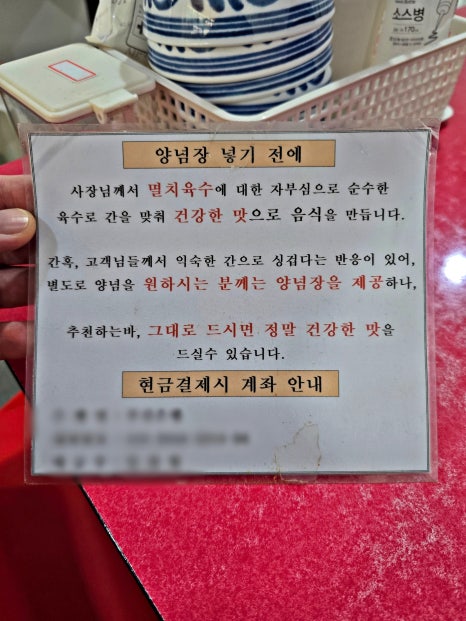 소스병
양념장 넣기 전에
사장님께서 멸치육수에 대한 자부심으로 순수한
육수로 간을 맞춰 건강한 맛으로 음식을 만듭니다.
간혹, 고객님들께서 익숙한 간으로 싱겁다는 반응이 있어,
별도로 양념을 원하시는 분께는 양념장을 제공하나,
추천하는바, 그대로 드시면 정말 건강한 맛을
드실수 있습니다.
현금결제시 계좌 안내